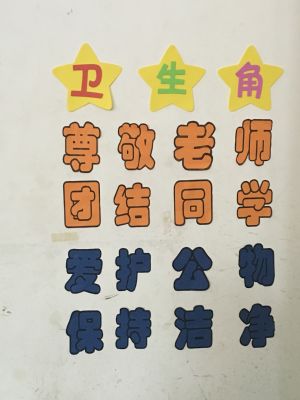 卫生角
尊敬老师
团结同学
爱护公物
保持洁净